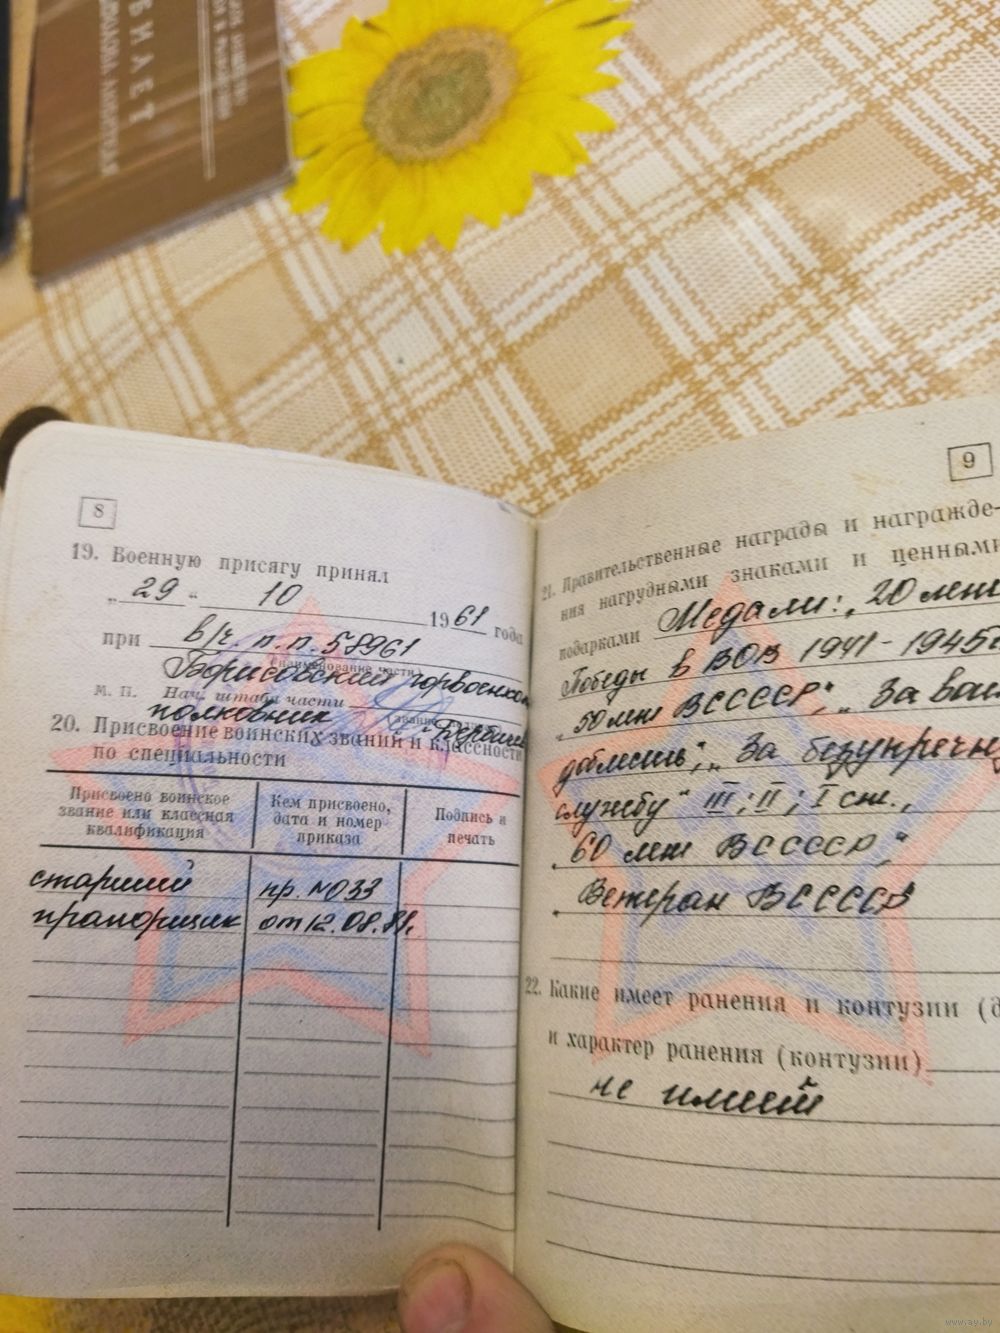 БИЛЕТ
8
19. Военную присягу принял
„ 29 “ 10 1961 года
при в/ч п.п. 58961
(наименование части)
Борисовский горвоенком
М. П. Нач. штаба части
полковник
20. Присвоение воинских званий и классности
по специальности
Присвоено воинское звание или классная квалификация
Кем присвоено, дата и номер приказа
Подпись и печать
старший пр. №033
прапорщик от 12.08.81г.
9
21. Правительственные награды и награжде-
ния нагрудными знаками и ценными
подарками Медали: „20 лет
Победы в ВОВ 1941-1945г
„50 лет ВССССР“; „За воин
доблесть“; „За безупречн
службу“ III; II; I ст.,
„60 лет ВССССР“,
„Ветеран ВССССР
22. Какие имеет ранения и контузии (д
и характер ранения (контузии)
не имеет
www.ay.by